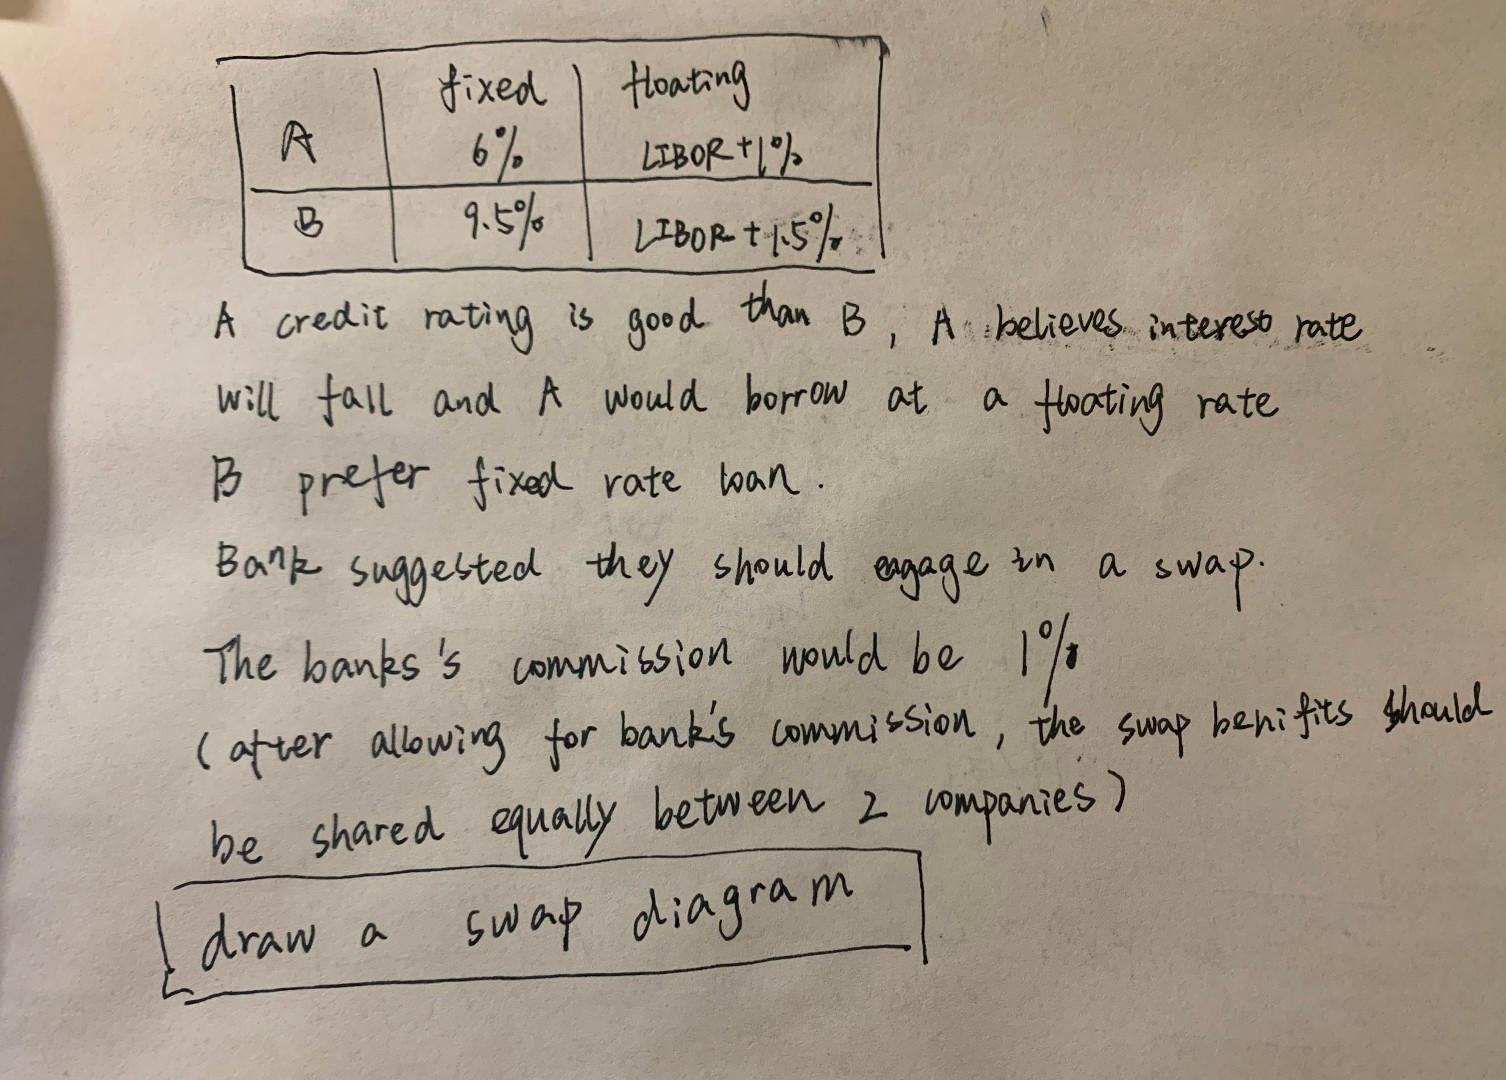 fixed floating
A 6% LIBOR+1%
B 9.5% LIBOR+1.5%
A credit rating is good than B, A believes interest rate
will fall and A would borrow at a floating rate
B prefer fixed rate loan.
Bank suggested they should eagage in a swap.
The banks's commission would be 1%
(after allowing for bank's commission, the swap benifits should
be shared equally between 2 companies)
draw a swap diagram